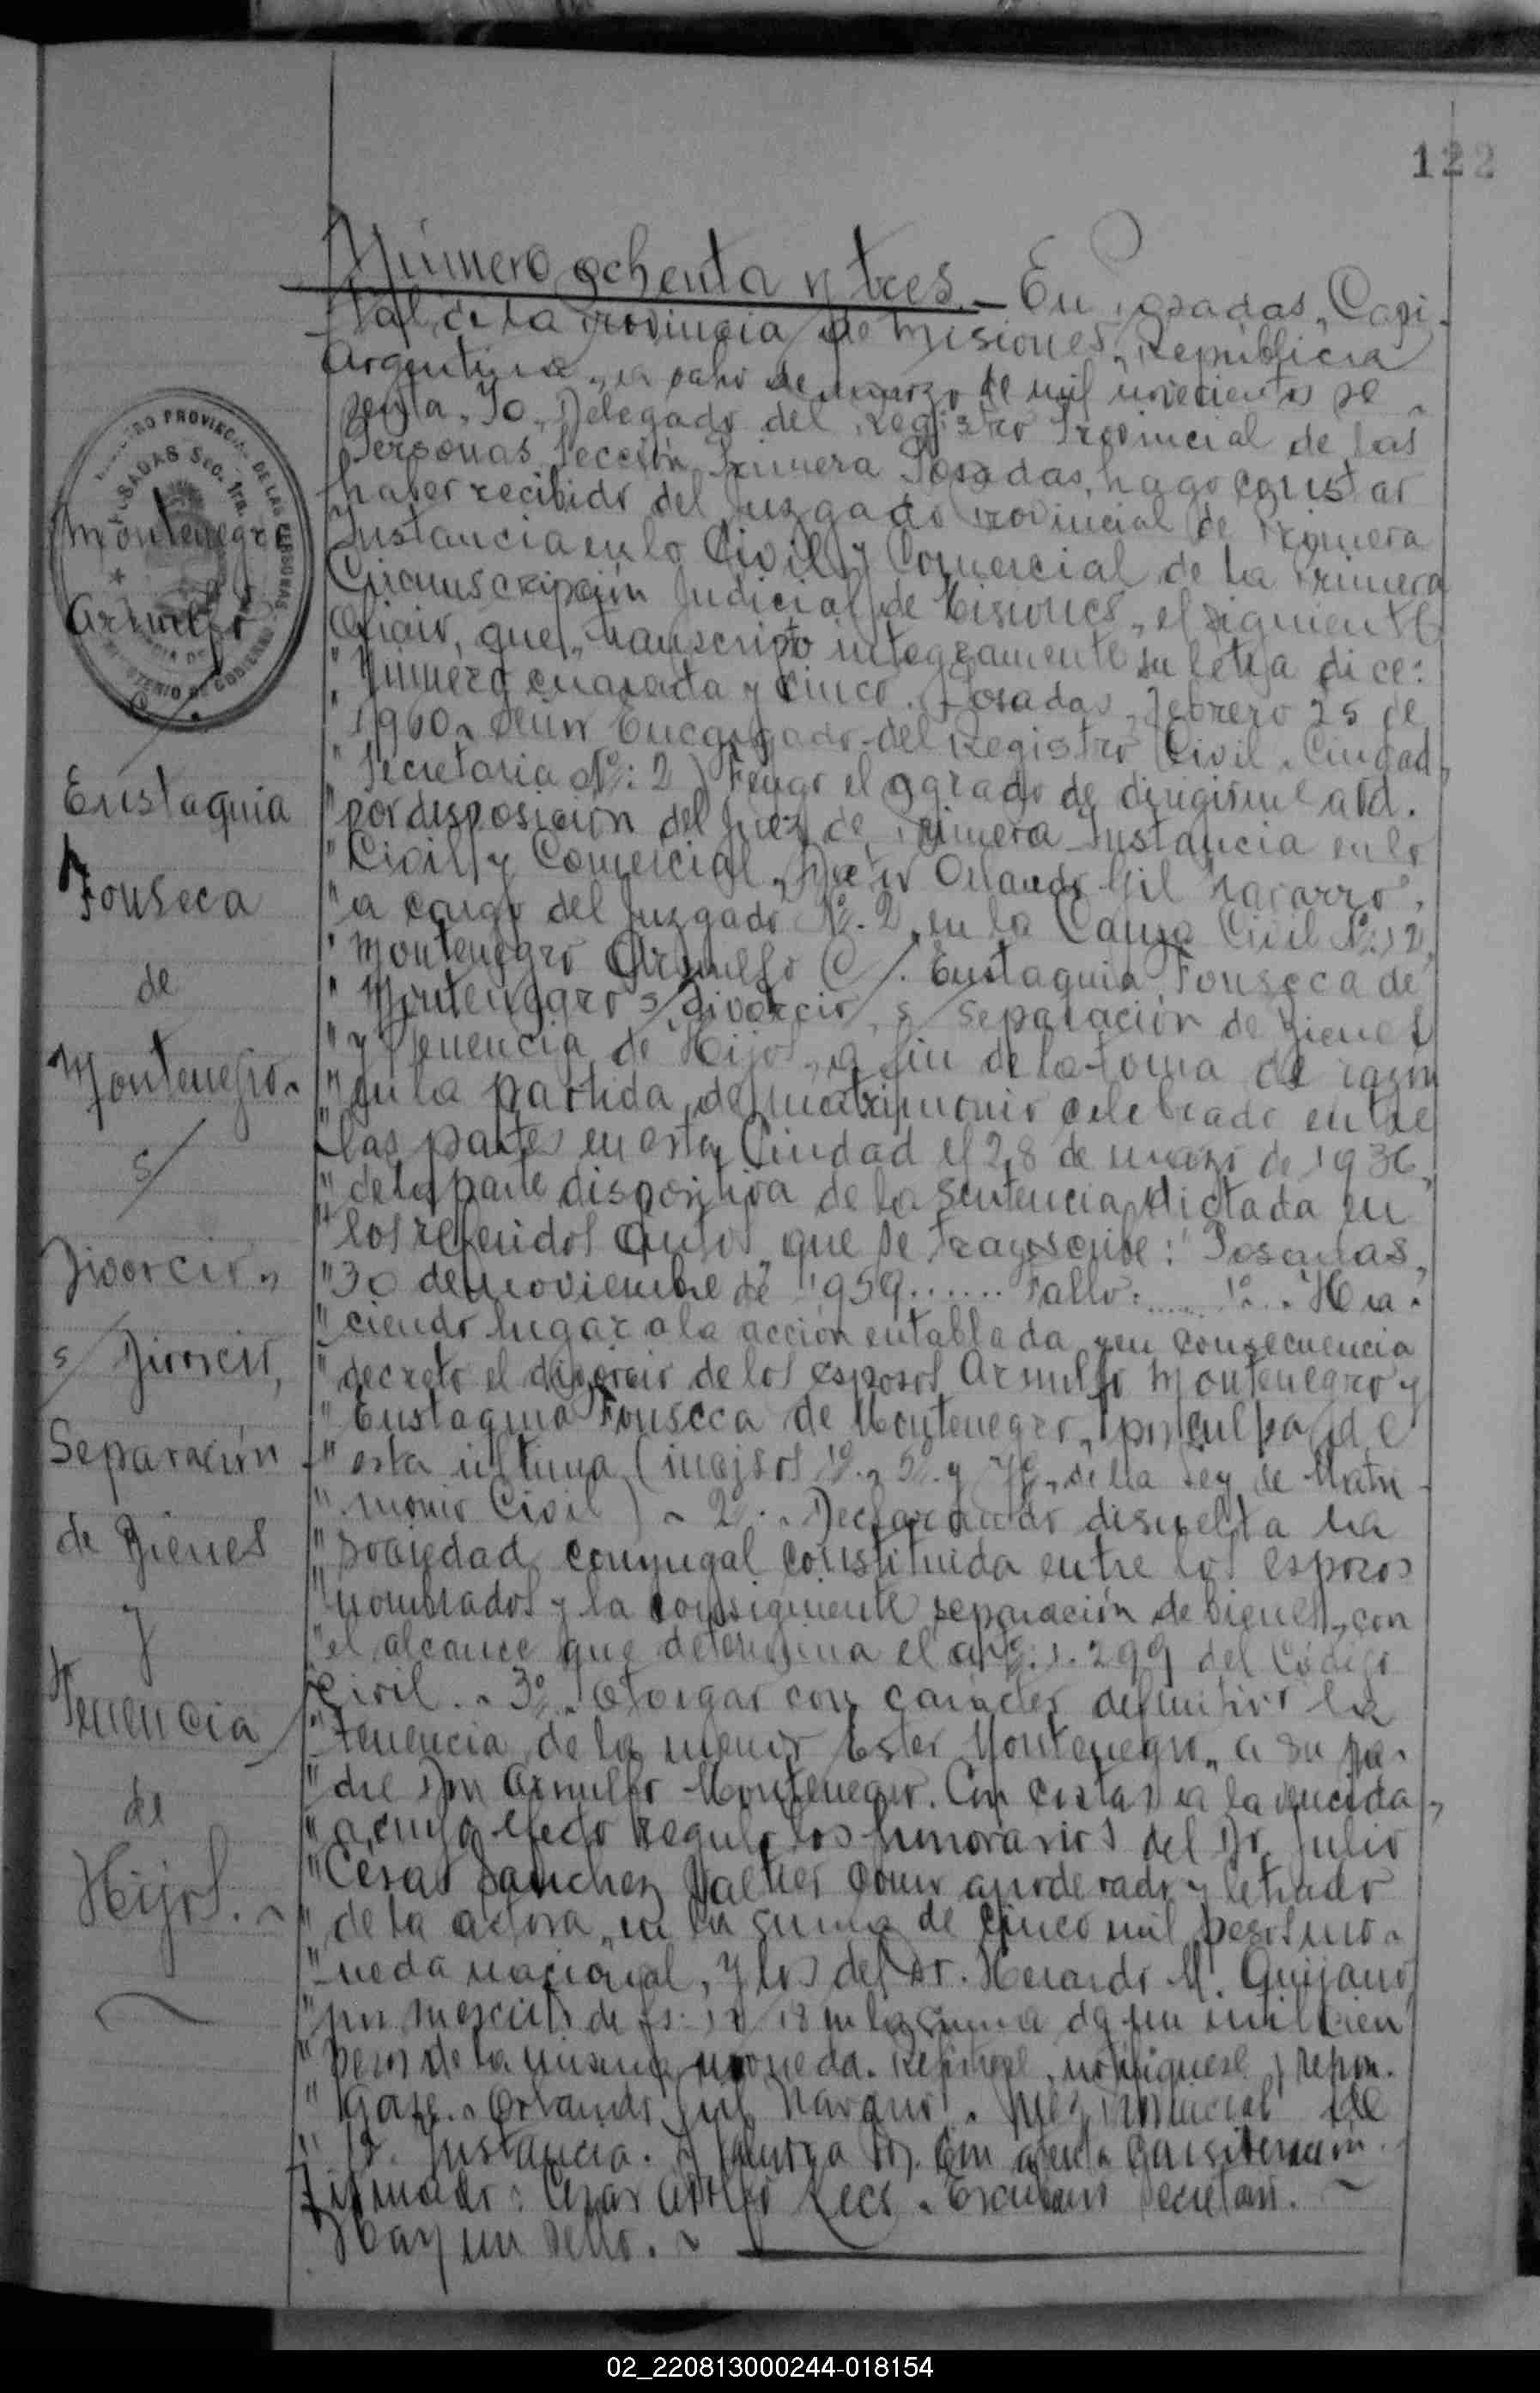 122
Número ochenta y tres.- En Posadas, Capi-
tal de la Provincia de Misiones, República
Argentina, a ocho de marzo de mil novecientos se-
senta, Yo, Delegado del Registro Provincial de las
Personas, Sección Primera Posadas, hago constar
haber recibido del Juzgado Provincial de Primera
Instancia en lo Civil y Comercial de la Primera
Circunscripción Judicial de Misiones, el siguiente
Oficio, que, transcripto integramente su letra dice:
"Número cuarenta y cinco. Posadas, Febrero 25 de
"1960. Señor Encargado del Registro Civil. Ciudad,
"Secretaria Nº: 2) Tengo el agrado de dirigirme a Ud.
"por disposición del Juez de Primera Instancia en lo
"Civil y Comercial, Doctor Orlando Gil Navarro,
"a cargo del Juzgado Nº. 2, en la Causa Civil Nº: 12,
"Montenegro Arnulfo C/. Eustaquia Fonseca de
"Montenegro s/ Divorcio, s/ Separación de Bienes
"y Tenencia de Hijos, a fin de la toma de razón
"en la partida de matrimonio celebrado entre
"las partes en esta Ciudad el 28 de marzo de 1936,
"de la parte dispositiva de la sentencia dictada en
"los referidos autos, que se transcribe: "Posadas,
"30 de noviembre de 1959...... Fallo:..... 1º.. Ha-
"ciendo lugar a la acción entablada y en consecuencia
"decreto el divorcio de los esposos Arnulfo Montenegro y
"Eustaquia Fonseca de Montenegro, por culpa de
"esta última (incisos 1º., 5º. y 7º., de la Ley de Matri-
"monio Civil). 2º.. Declarando disuelta la
"sociedad conyugal constituida entre los esposos
"nombrados y la consiguiente separación de bienes, con
"el alcance que determina el art. 1.299 del Código
"Civil.. 3º.. Otorgar con carácter definitivo la
"tenencia de la menor Ester Montenegro, a su pa-
"dre Don Arnulfo Montenegro. Con costas a la vencida,
"a cuyo efecto regulo los honorarios del Dr. Julio
"César Sanchez como apoderado y letrado
"de la actora, en la suma de cinco mil pesos mo-
"neda nacional, y los del Dr. M. Quijano,
"por su escrito de fs. 18 en la suma de un mil cien
"pesos de la misma moneda. Regístrese, notifiquese y repón-
"gase. Orlando Gil Navarro. Juez Provincial de
"1ª. Instancia. Saluda a Ud. con atenta consideración.
Firmado: César . Escribano Secretario.
Hay un sello.
Montenegro
Arnulfo
C/
Eustaquia
Fonseca
de
Montenegro.
s/
Divorcio,
s/ Divorcio,
Separación
de Bienes
y
Tenencia
de
Hijos.
POSADAS Sec. 1ra.
02_220813000244-018154